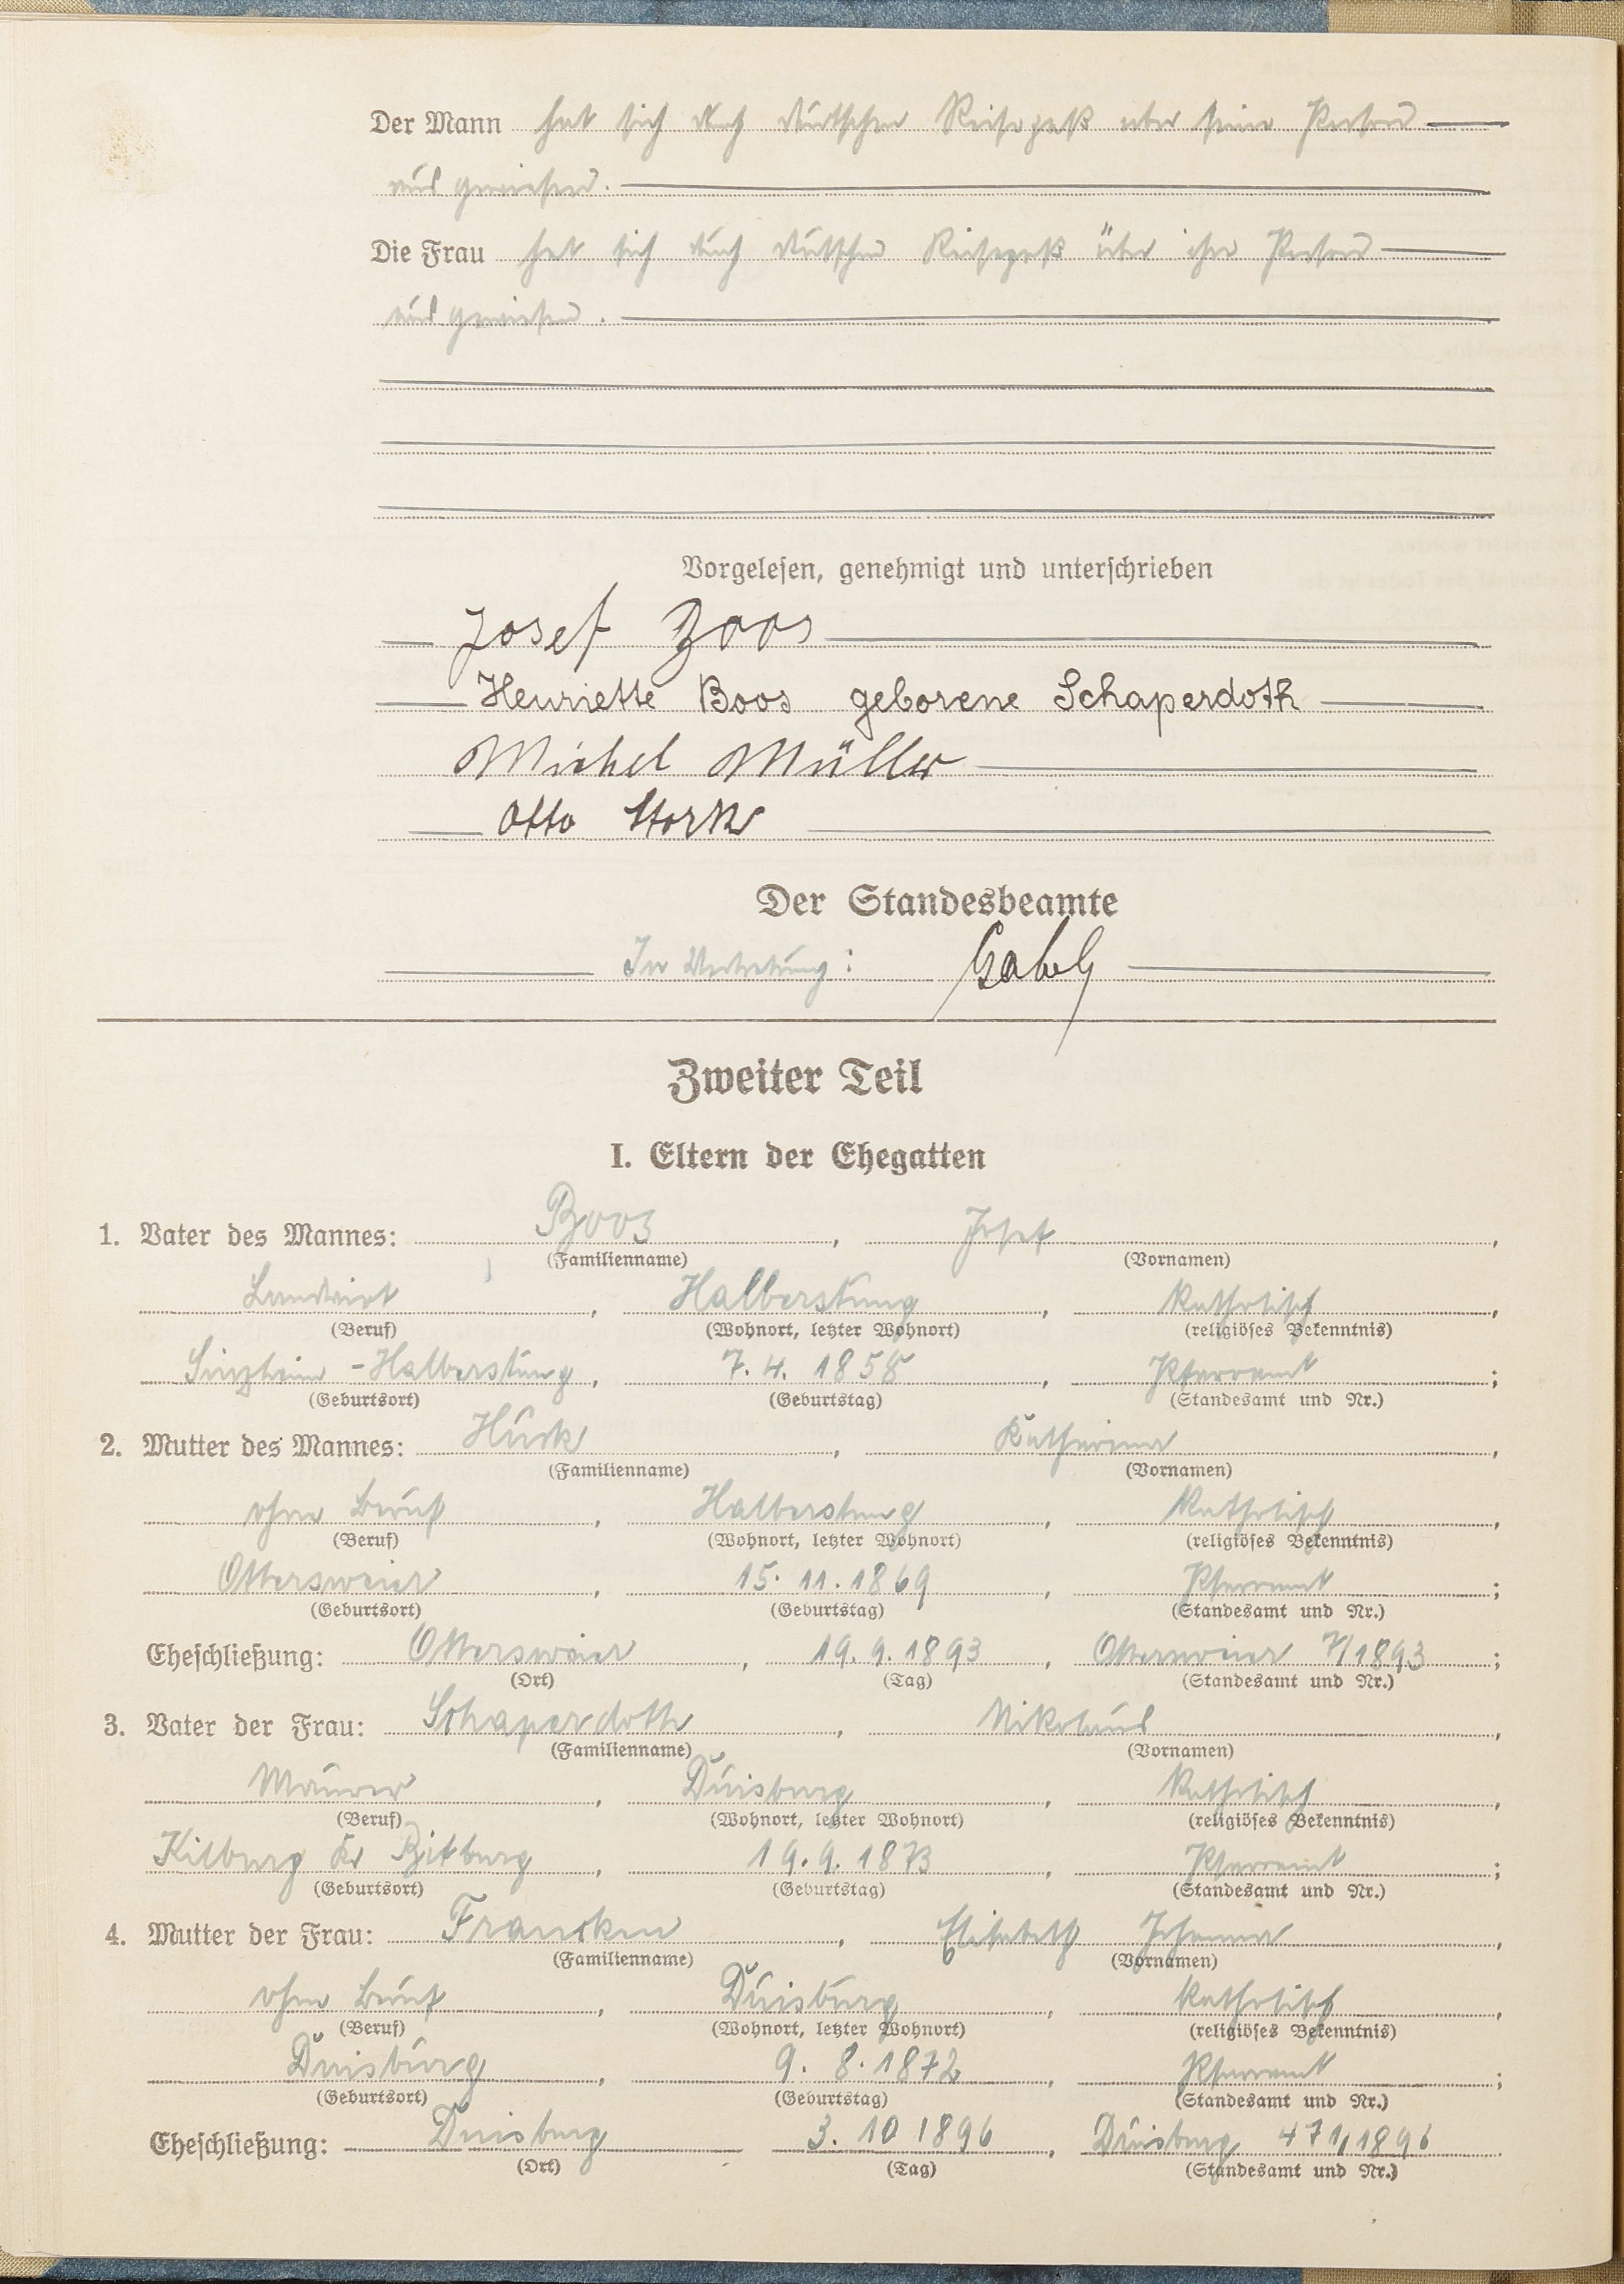 Der Mann hat sich durch deutschen Reisepaß über seine Person
ausgewiesen.
Die Frau hat sich durch deutschen Reisepaß über ihre Person
ausgewiesen.
Vorgelesen, genehmigt und unterschrieben
Josef Boos
Henriette Boos geborene Schaperdoth
Michel Müller
Otto Stork
Der Standesbeamte
In Vertretung:
Zweiter Teil
I. Eltern der Ehegatten
1. Vater des Mannes: Boos, Josef,
(Familienname) (Vornamen)
Landwirt, Halberstung, katholisch,
(Beruf) (Wohnort, letzter Wohnort) (religiöses Bekenntnis)
Sinzheim-Halberstung, 7.4.1858, Pfarramt;
(Geburtsort) (Geburtstag) (Standesamt und Nr.)
2. Mutter des Mannes: Huck, Katharina,
(Familienname) (Vornamen)
ohne Beruf, Halberstung, katholisch,
(Beruf) (Wohnort, letzter Wohnort) (religiöses Bekenntnis)
Ottersweier, 15.11.1869, Pfarramt;
(Geburtsort) (Geburtstag) (Standesamt und Nr.)
Eheschließung: Ottersweier, 19.9.1893, Ottersweier 7/1893;
(Ort) (Tag) (Standesamt und Nr.)
3. Vater der Frau: Schaperdoth, Nikolaus,
(Familienname) (Vornamen)
Maurer, Duisburg, katholisch,
(Beruf) (Wohnort, letzter Wohnort) (religiöses Bekenntnis)
Kilburg Kr Bitburg, 19.9.1873, Pfarramt;
(Geburtsort) (Geburtstag) (Standesamt und Nr.)
4. Mutter der Frau: Francken, Elisabeth Johanna,
(Familienname) (Vornamen)
ohne Beruf, Duisburg, katholisch,
(Beruf) (Wohnort, letzter Wohnort) (religiöses Bekenntnis)
Duisburg, 9.8.1872, Pfarramt;
(Geburtsort) (Geburtstag) (Standesamt und Nr.)
Eheschließung: Duisburg 3.10 1896, Duisburg 471/1896
(Ort) (Tag) (Standesamt und Nr.)